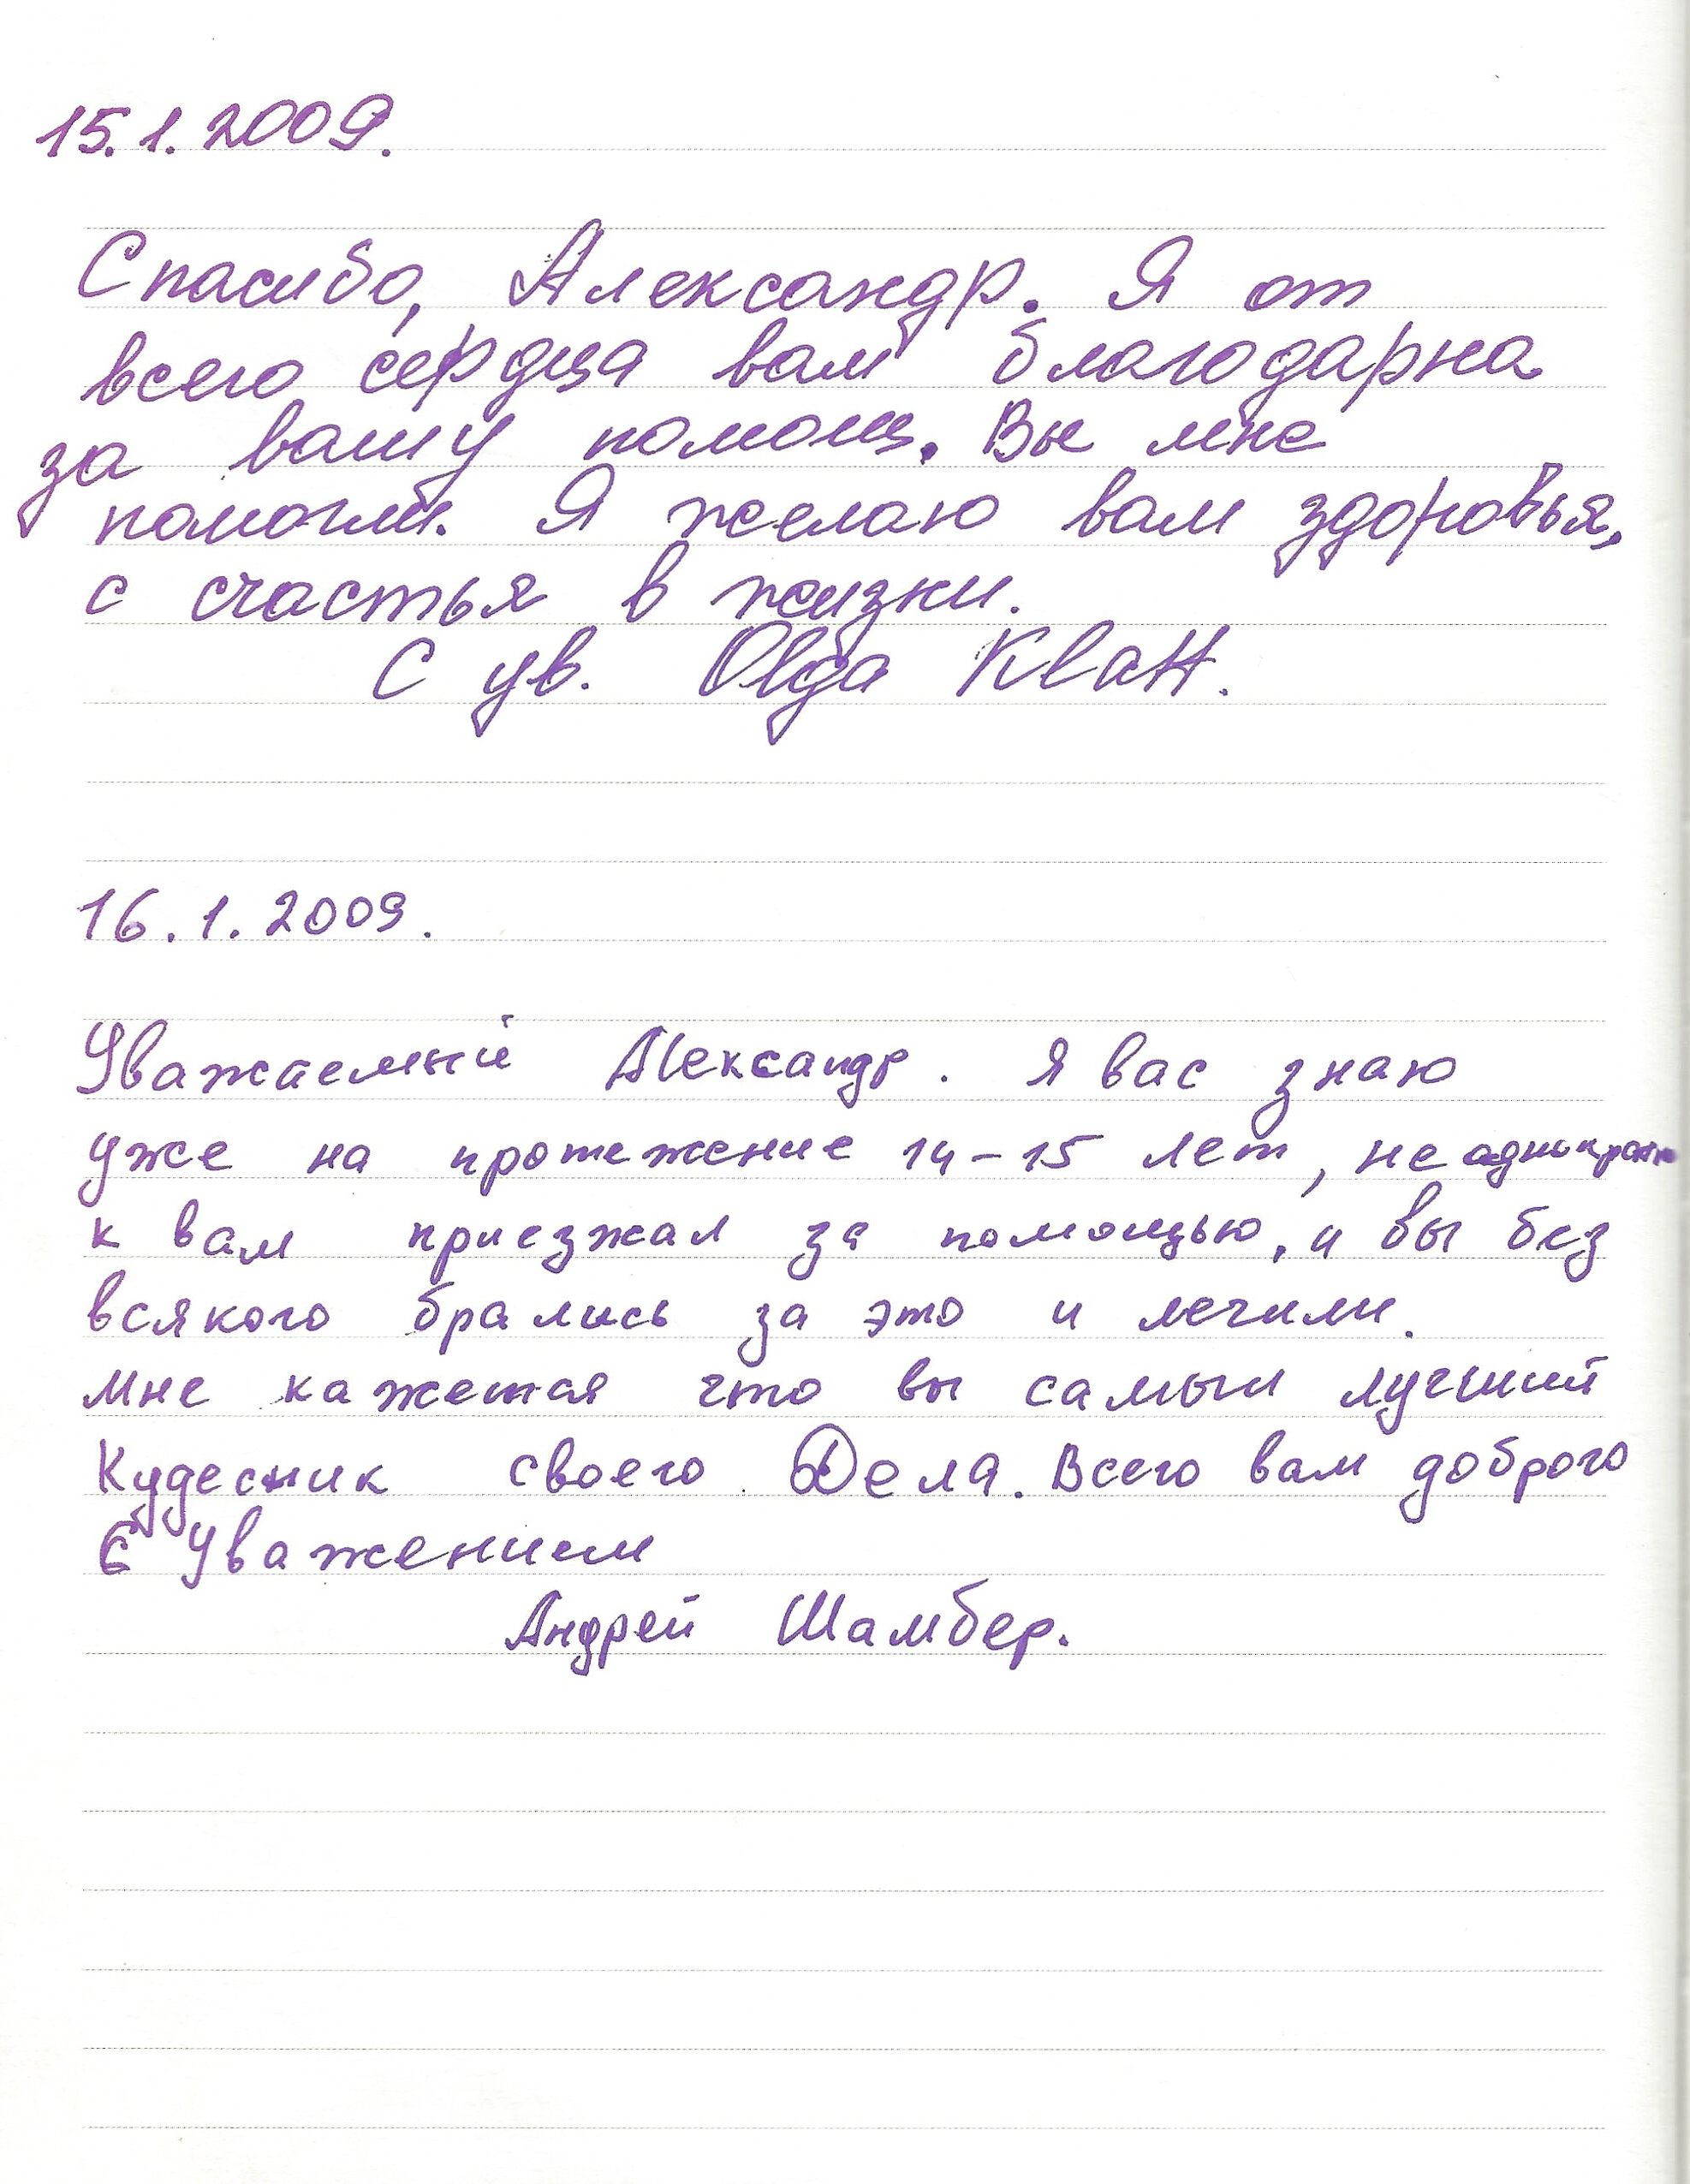 15.1.2009.
Спасибо, Александр. Я от
всего сердца вам благодарна
за вашу помощ. Вы мне
помогли. Я желаю вам здоровья,
с счастья в жизни.
С ув. Olga Klatt.
16.1.2009.
Уважаемый Александр. Я вас знаю
уже на протежение 14-15 лет, неоднократно
к вам приезжал за помощью, и вы без
всякого брались за это и лечили.
Мне кажется что вы самый лучший
Кудесник своего Дела. Всего вам доброго
С Уважением
Андрей Шамбер.